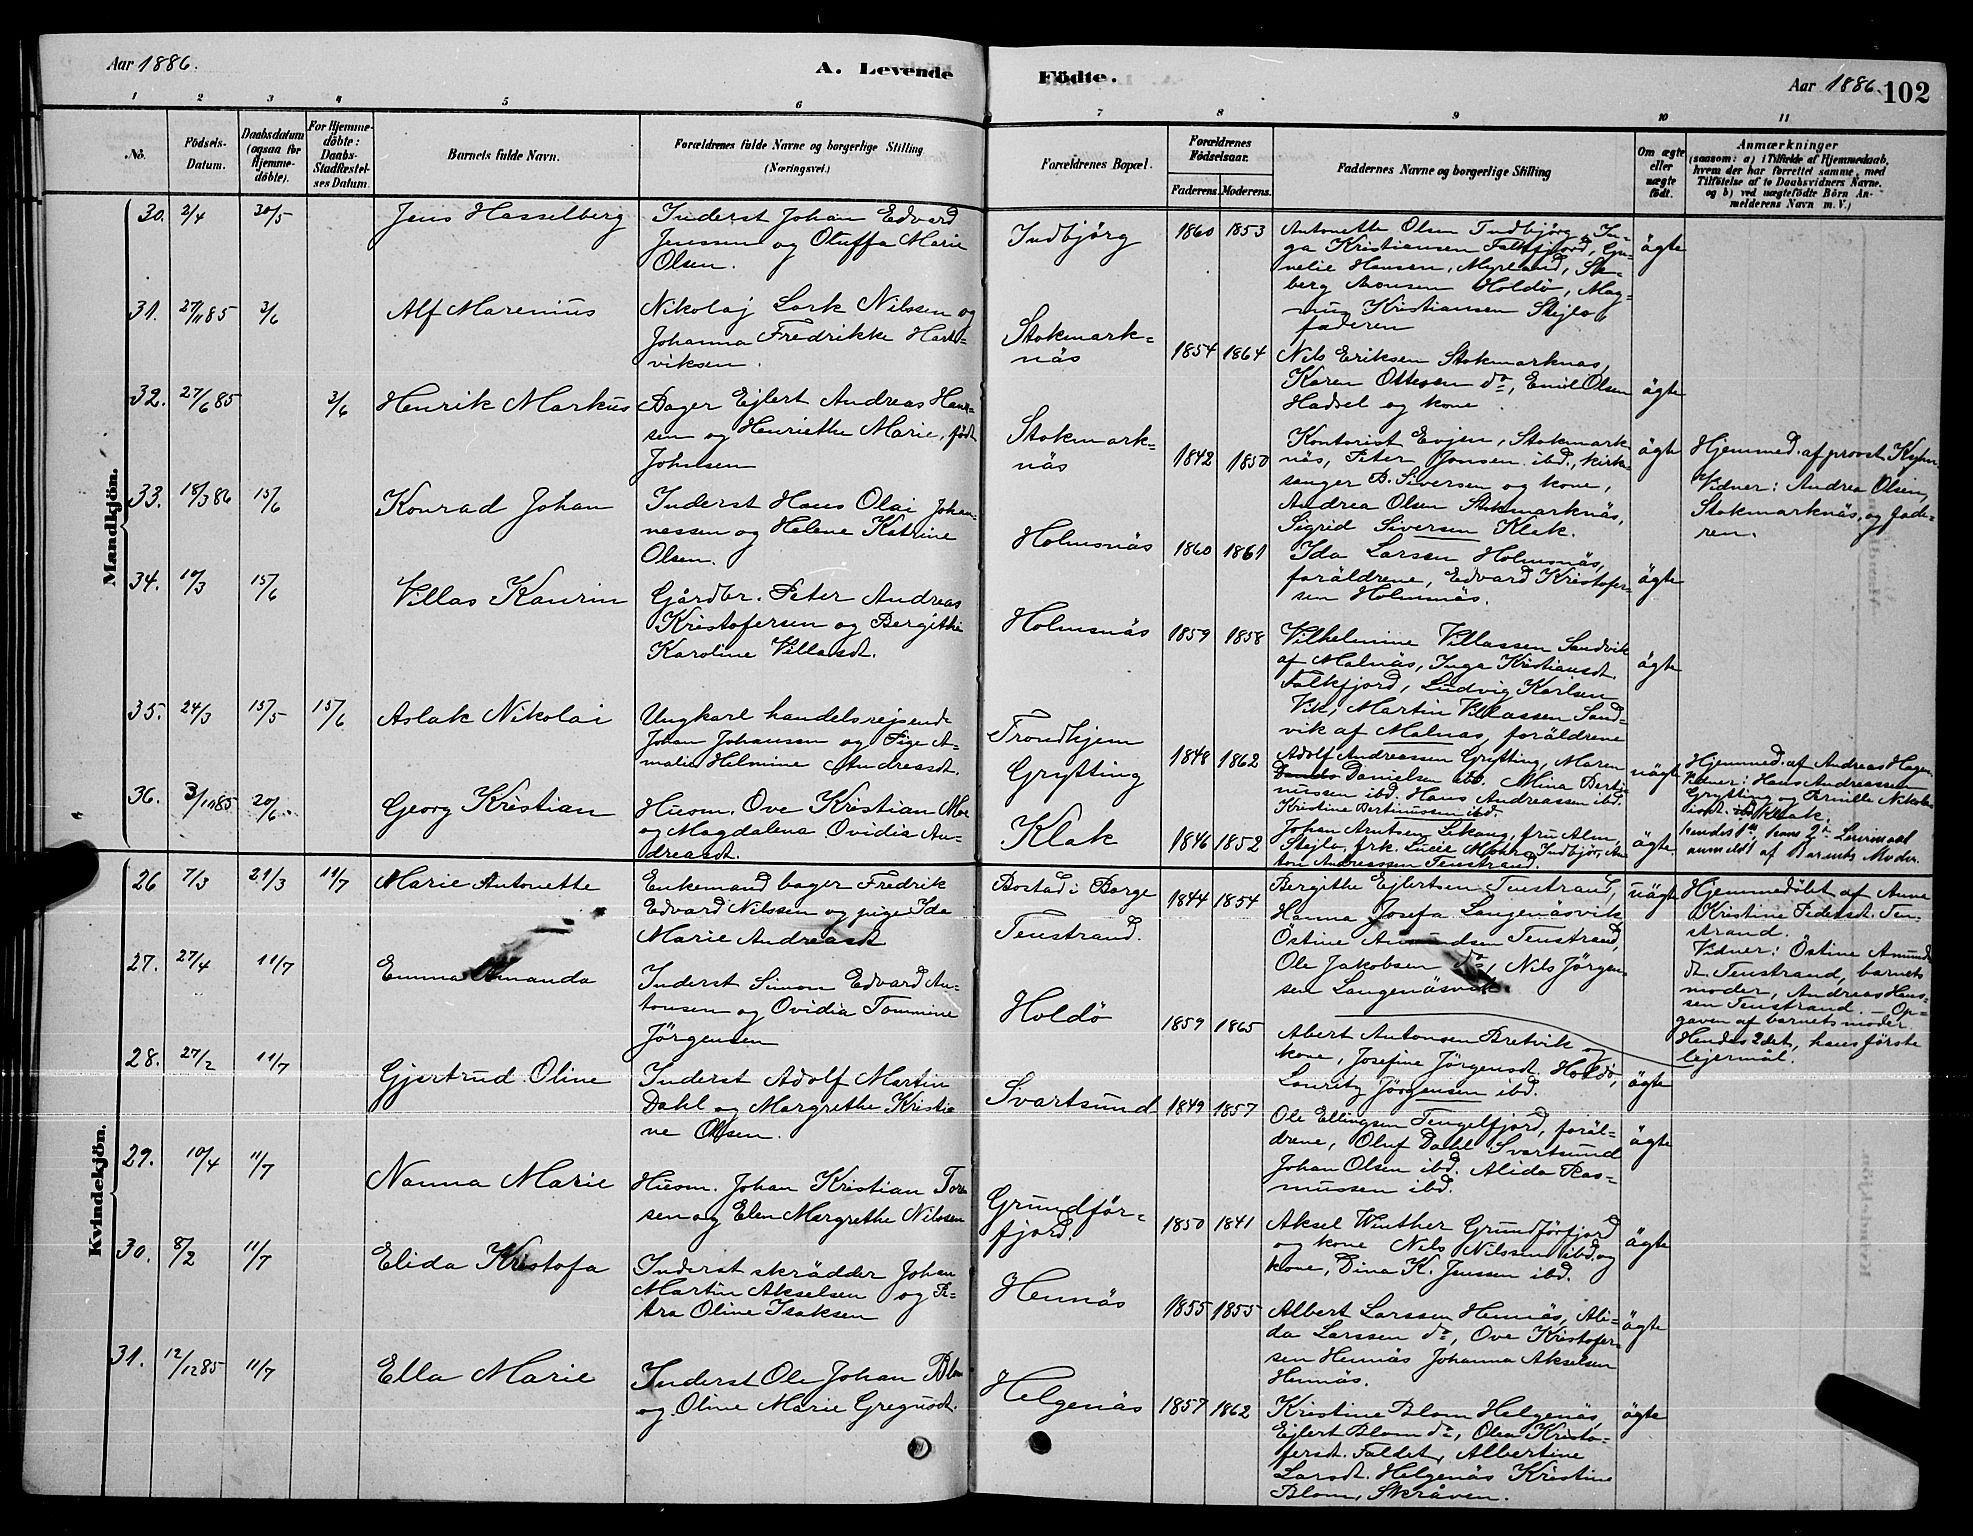 Aar 1886.
A. Levende
Födte.
Aar 1886.
102
1 2 3 4 5 6
7 8 9 10 11
No.
Födsels-
Datum.
Daabsdatum
(ogsaa for
Hjemme-
döbte).
For Hjemme-
döbte:
Daabs-
Stadfæstel-
ses Datum.
Barnets fulde Navn.
Forældrenes fulde Navne og borgerlige Stilling
(Næringsvei.)
Forældrenes Bopæl.
Forældrenes
Födselsaar.
Faderens. Moderens.
Faddernes Navne og borgerlige Stilling
Om ægte
eller
uægte
födt.
Anmærkninger
(saasom: a) i Tilfælde af Hjemmedaab,
hvem der har forrettet samme, med
Tilföielse af to Daabsvidners Navne.
og b) ved uægtefödte Börn An-
melderens Navn m. V.)
Mandkjön.
30. 2/4 30/5
Jens Hasselberg
Inderst Johan Edvard
Jenssen og Oluffa Marie
Olsen.
Indbjörg
1860 1853
Antonette Olsen Indbjörg, In-
ga Kristiansen Falkfjord,
nelie Hansen, Myrland,
berg Holdö, Mag-
nus Kristiansen Stejlo,
faderen
ägte
31. 27/11 85 3/6
Alf Marenius
Nikolaj Lork Nilssen og
Johanna Fredrikke Hart-
viksen.
Stokmark-
näs
1854 1864
Nils Eriksen Stokmarknäs,
Karen Ottesen do, Emil Olsen
Hadsel og kone.
ägte
32. 27/6 85 3/6
Henrik Markus
Bager Ejlert Andreas Han-
sen og Henriethe Marie, født
Johnsen
Stokmark-
näs
1842 1850
Kontorist Evjen, Stokmark
näs, Peter Jonsen ibd., kirke-
sanger B. Siversen og kone,
Andrea Olsen Stokmarknäs,
Sigrid Siversen Klak.
ägte
Hjemmed. af provst
Vidner: Andrea Olsen,
Stokmarknäs, og fade-
ren.
33. 18/3 86 15/6
Konrad Johan
Inderst Hans Olai Johan-
nessen og Helene Katrine
Olsen.
Holmsnäs
1860 1861
Ida Larssen Holmsnäs,
foräldrene, Edvard Kristofer-
sen Holmsnäs.
ägte
34. 10/3 15/6
Villas Kaurin
Gårdbr. Peter Andreas
Kristofersen og Bergithe
Karoline Villasdt.
Holmsnäs
1859 1858
Vilhelmine Villassen Sandvik
af Malnäs, Inga Kristiansdt.
Falkfjord, Ludvig Karlsen
Vik, Martin Villassen Sand-
vik af Malnäs, foräldrene
ägte
35. 24/3 15/5 15/6
Aslak Nikolai
Ungkarl handelsrejsende
Johan Johansen og Pige A-
malie Helmine Andreasdt.
Trondhjem
Grytting
1848 1862
Adolf Andreassen Grytting, Maren
Danielsen ibd. Mina Berti-
nussen ibd. Hans Andreassen ibd.
Kristine Bertinussen ibd.
uägte
Hjemmed. af Andreas Hagen
Vidner: Hans Andreassen
Grytting og Pernille Nikolai-
Klak.
hendes 1ste, hans 2det Leiermaal
anmeldt af Barnets Moder.
36. 3/11 85 20/6
Georg Kristian
Husm. Ove Kristian Moe
og Magdalena Ovidia An-
dreasdt.
Klak
1846 1852
Johan Arntsen Lekang, fru Alm,
Stejlo, frk. Lucie Mohr, Indbjör, An-
ton Andreassen Tenstrand.
ägte.
Kvindekjön.
26 7/3 21/3 11/7
Marie Antonette
Enkemand bager Fredrik
Edvard Nilssen og pige Ida
Marie Andreasdt
Bostad i Borge
Tenstrand.
1844 1854
Bergithe Ejlertsen Tenstrand,
Hanna Josefa Langenäsvik
Östine Amundsen Tenstrand,
Ole Jakobsen do, Nils Jörgen-
sen Langenäsvik
uägte
Hjemmedöbt af Anne
Kristine Pedersdt. Ten-
strand.
Vidner: Östine Amunds
dt. Tenstrand, barnets
moder, Andreas Hans-
sen Tenstrand. — Op-
gaven af barnets moder.
Hendes 2det, hans förste
lejermål.
27. 27/4 11/7
Emma Amanda
Inderst Simon Edvard An-
tonsen og Ovidia Tommine
Jörgensen
Holdö
1859 1865
Abert Antonsen Bretvik og
kone, Josefine Jörgensdt. Holdö,
Lauritz Jörgensen ibd.
ägte
28. 27/2 11/7
Gjertrud Oline
Inderst Adolf Martin
Dahl og Margrethe Kristi-
ne Olsen.
Svartsund
1849 1857
Ole Ellingsen Tengelfjord, foräl-
drene, Oluf Dahl Svartsund
Johan Olsen ibd. Alida Ras-
mussen ibd.
ägte
29. 10/4 11/7
Nanna Marie
Husm. Johan Kristian Tor-
sen og Elen Margrethe Nilssen
Grundför-
fjord.
1850 1841
Aksel Winther Grundförfjord
og kone Nils Nilssen ibd. og
kone, Dina K. Jenssen ibd.
ägte
30. 8/2 11/7
Elida Kristofa
Inderst skrädder Johan
Martin Akselsen og Pe-
tra Oline Isaksen
Hennäs
1855 1855
Albert Larssen Hennäs, Ali-
da Larssen do, Ove Kristofer-
sen Hennäs Johanna Akselsen
Hennäs.
ägte
31. 12/12 85 11/7
Ella Marie
Inderst Ole Johan Blom
og Oline Marie Gregusdt.
Helgenäs
1857 1862
Kristine Blom Helgenäs,
Ejlert Blom do, Olea Kristo-
fersdt. Faldet, Albertine
Larsdt. Helgenäs Kristine
Blom, Skråven.
ägte